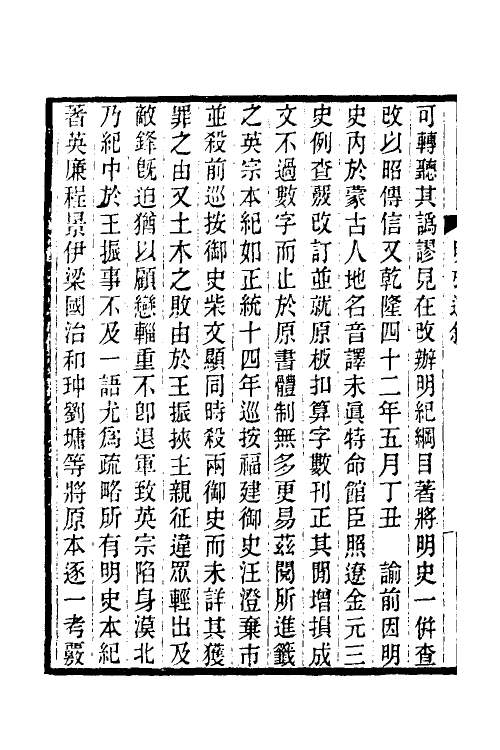 可轉聽其譌謬見在改辦明紀綱目著將明史一併查
改以昭傳信又乾隆四十二年五月丁丑　諭前因明
史內於蒙古人地名音譯未眞特命館臣照遼金元三
史例查覈改訂並就原板扣算字數刊正其閒增損成
文不過數字而止於原書體制無多更易茲閱所進籤
之英宗本紀如正統十四年巡按福建御史汪澄棄市
並殺前巡按御史柴文顯同時殺兩御史而未詳其獲
罪之由又土木之敗由於王振挾主親征違眾輕出及
敵鋒旣迫猶以顧戀輜重不卽退軍致英宗陷身漠北
乃紀中於王振事不及一語尤爲疏略所有明史本紀
著英廉程景伊梁國治和珅劉墉等將原本逐一考覈